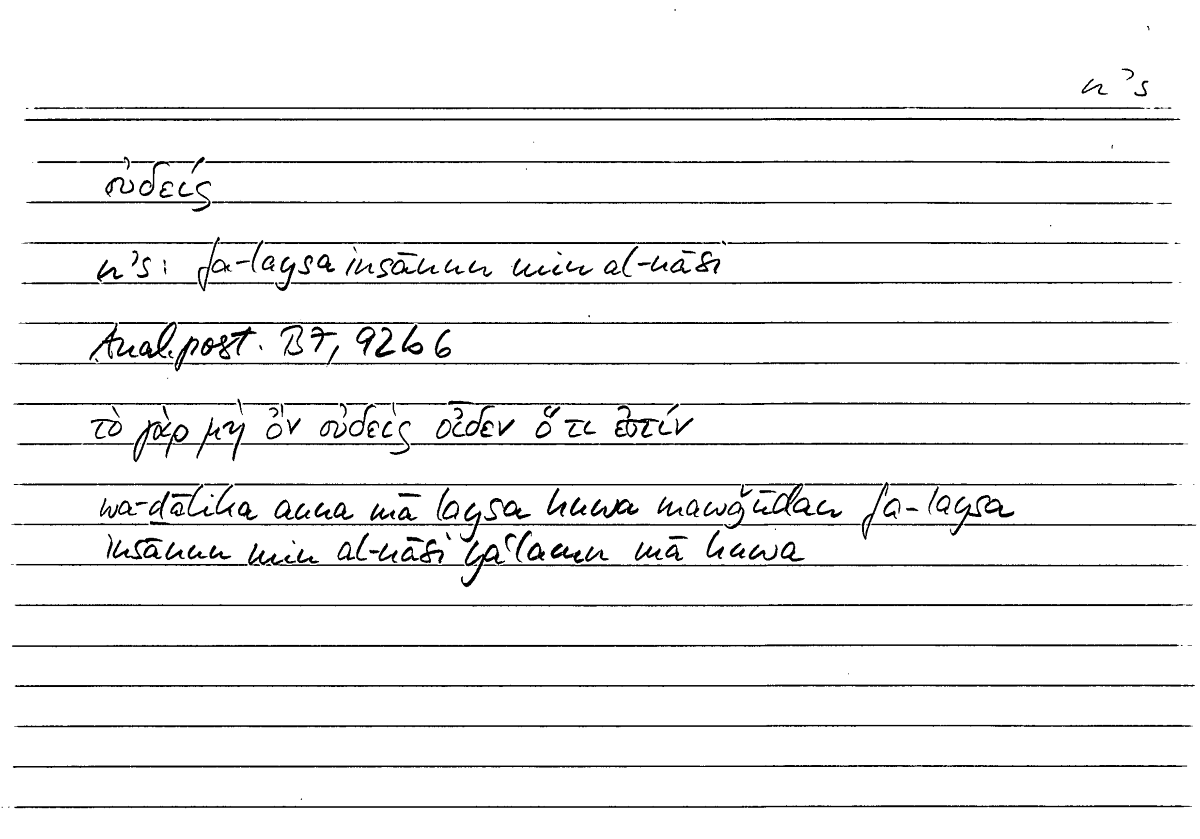 n ʾ s
οὐδείς
nʾs: fa-laysa insānun min al-nāsi
Anal. post. B7, 92b6
τὸ γὰρ μὴ ὂν οὐδεὶς οἶδεν ὅ τι ἐστίν
wa-ḏālika anna mā laysa huwa mawǧūdan fa-laysa
insānun min al-nāsi yaʿlamu mā huwa